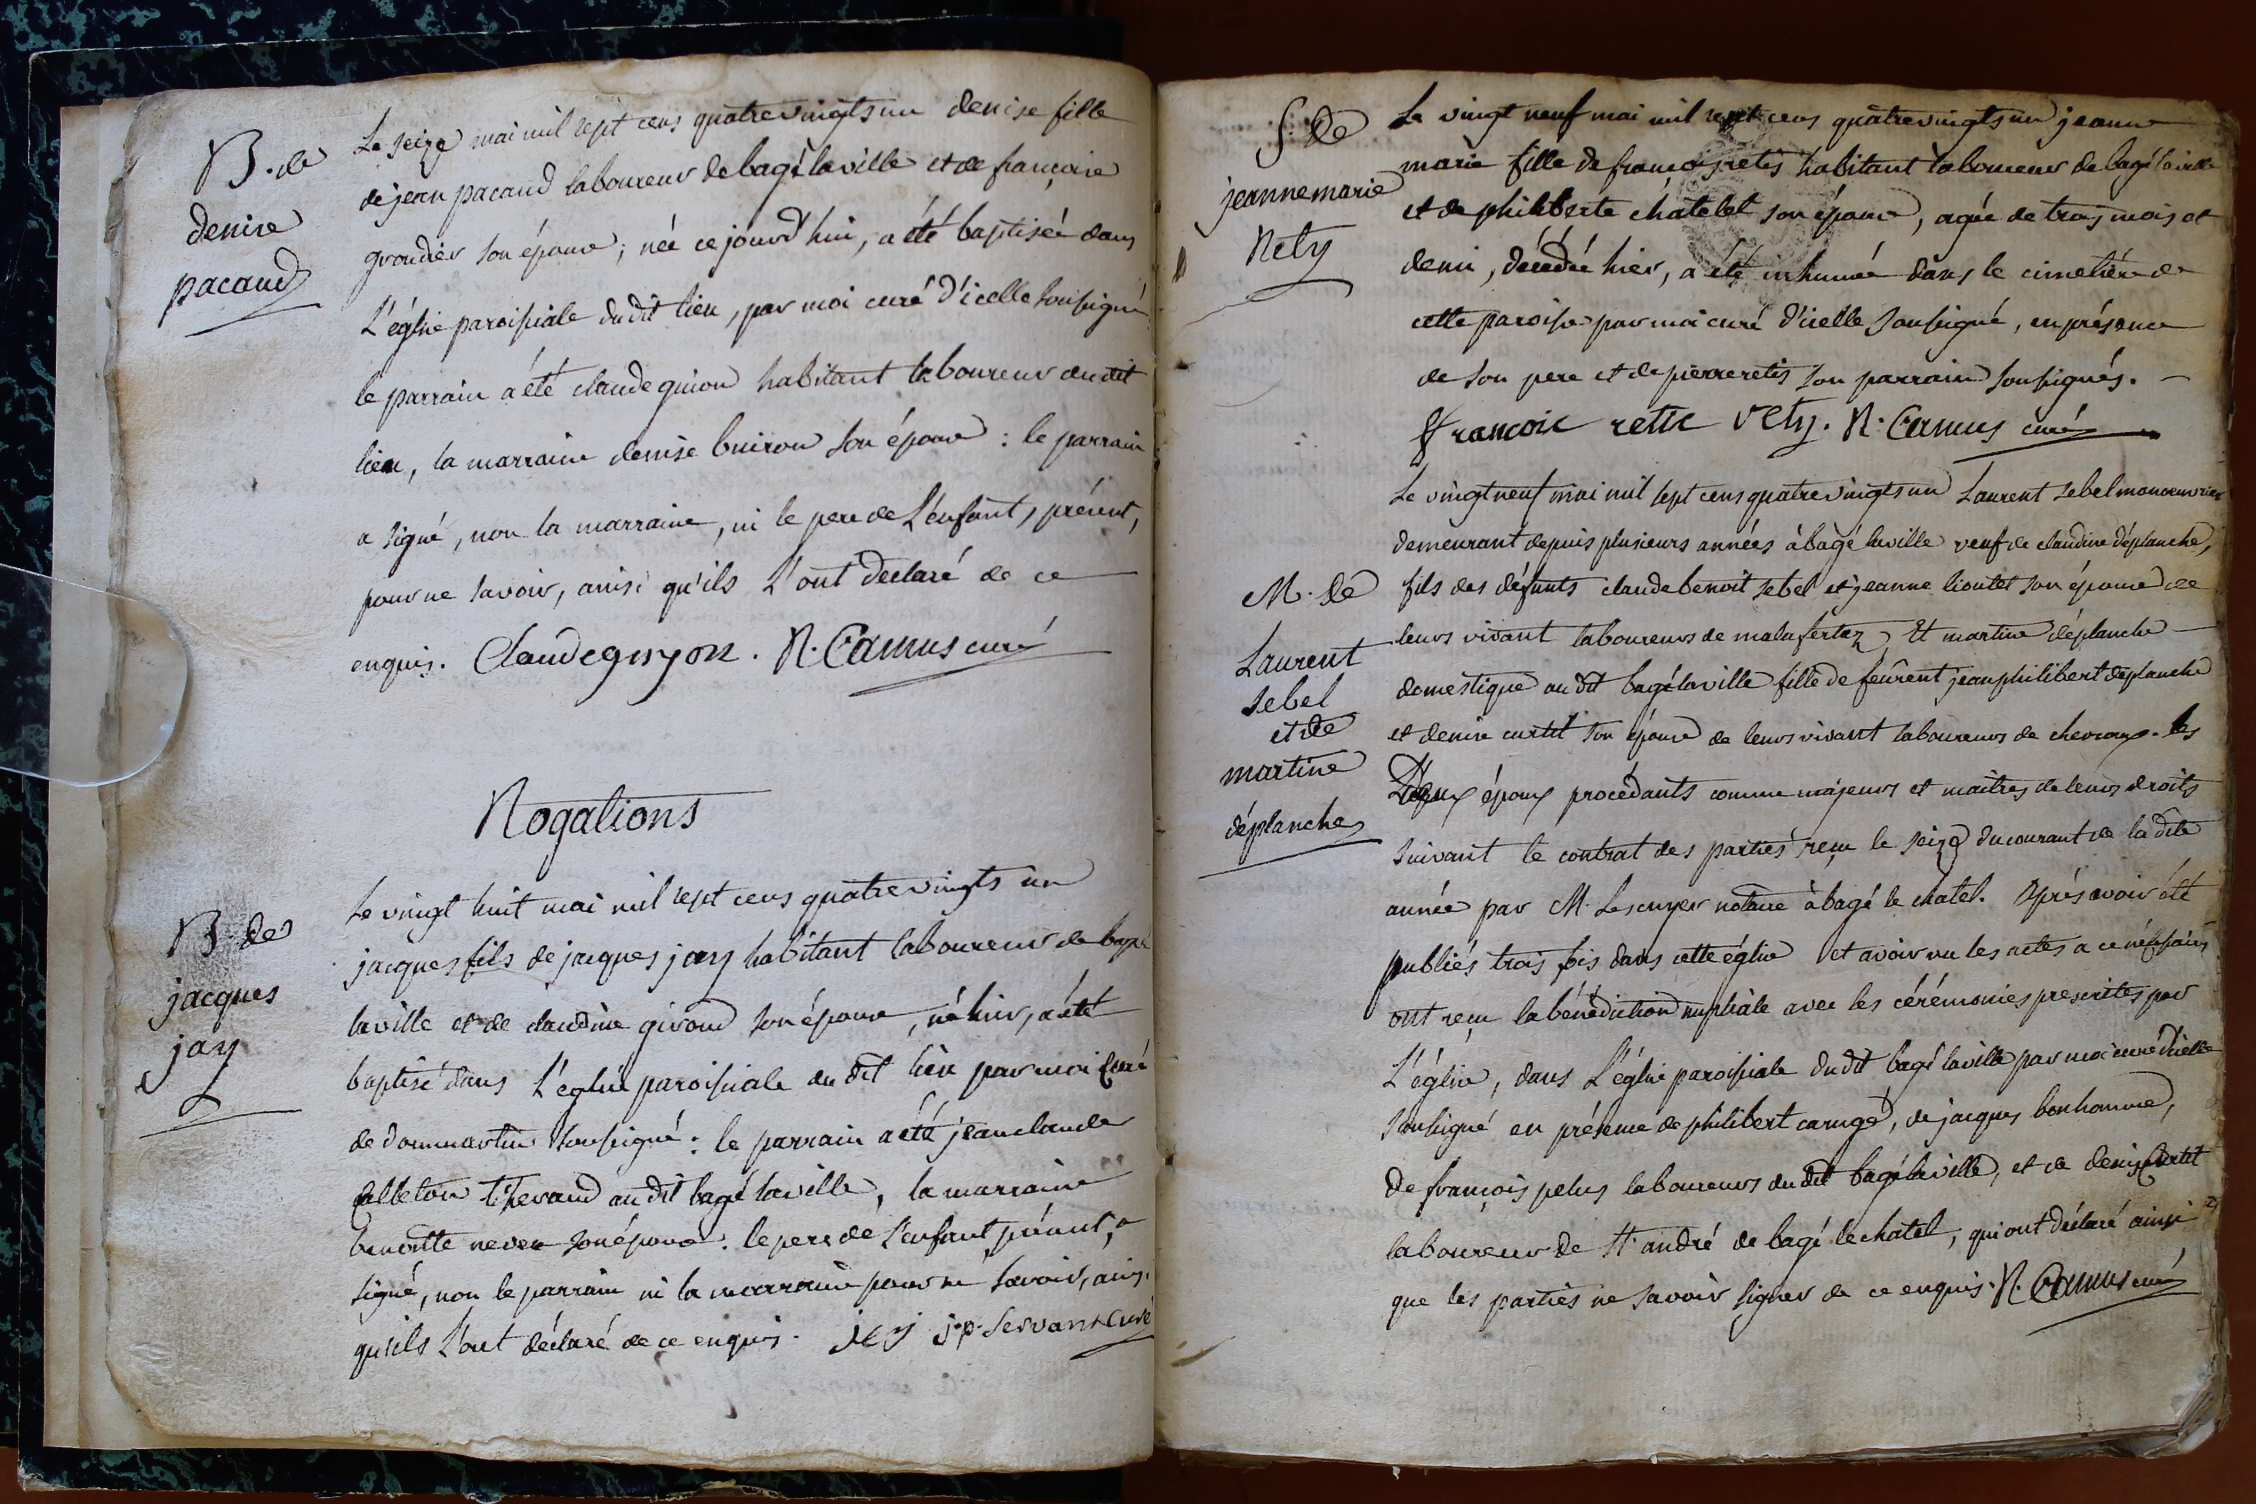 B. de
denise
pacaud
Le seize mai mil sept cens quatre vingts un denise fille
de jean pacaud laboureur de bagé la ville et de françoise
grondier son épouse ; née ce jourd'hui, a été baptisée dans
L'église paroissiale du dit lieu, par moi curé d'icelle soussigné
le parrain a été claude guion habitant laboureur du dit
lieu, la marraine denise buiron son épouse : le parrain
a signé, non la marraine, ni le pere de L'enfant, présent,
pour ne savoir, ainsi qu'ils L'ont declaré de ce
enquis. Claude guyon. N. Camus curé
Rogations
B. de
jacques
jay
Le vingt huit mai mil sept cens quatre vingts un
jacques fils de jacques jay habitant laboureur de bagé
la ville et de claudine giroud son épouse, né hier, a été
baptisé dans L'église paroissiale du dit lieu par moi curé
de dommartin soussigné : le parrain a été jean claude
alleton au dit bagé la ville, la marraine
benoitte neveu son épouse : le pere de L'enfant présent, a
signé, non le parrain ni la marraine pour ne savoir, ainsi
qu'ils L'ont déclaré de ce enquis. j.p. Servant curé
S. de
jeanne marie
Rety
Le vingt neuf mai mil sept cens quatre vingts un jeanne
marie fille de françois retis habitant laboureur de bagé la ville
et de philiberte châtelet son épouse, agée de trois mois et
demi, décédée hier, a été inhumée dans le cimetière de
cette paroisse par moi curé d'icelle soussigné, en présence
de son pere et de pierre retis son parrain soussignés.
francoic retic rety. N. Camus curé
M. de
Laurent
sebel
et de
martine
déplanche
Le vingt neuf mai mil sept cens quatre vingts un Laurent sebel manoeuvrier
demeurant depuis plusieurs années à bagé la ville veuf de claudine déplanche,
fils des défunts claude benoit sebel et jeanne lioulet son épouse de
leurs vivant laboureurs de malafertaz, Et martine déplanche
domestique au dit bagé la ville fille de feurent jean philibert déplanche
et denise curtil son épouse de leurs vivant laboureurs de chevroux. les
Dégux époux procédants comme majeurs et maitres de leurs droits
suivant le contrat des parties reçu le seize du courant de la dite
année par M. Lescuyer notaire à bagé le chatel. Après avoir été
publiés trois fois dans cette église et avoir vu les actes a ce nécessaires
ont reçu la bénédiction nuptiale avec les cérémonies prescrites par
L'église, dans L'église paroissiale du dit bagé la ville par moi curé d'icelle
soussigné en présence de philibert caruge, de jacques bonhomme,
de françois pelus laboureurs du dit bagé la ville, et de denis Curtil
laboureur de St andré de bagé le chatel, qui ont déclaré ainsi
que les parties ne savoir signer de ce enquis. N. Camus curé